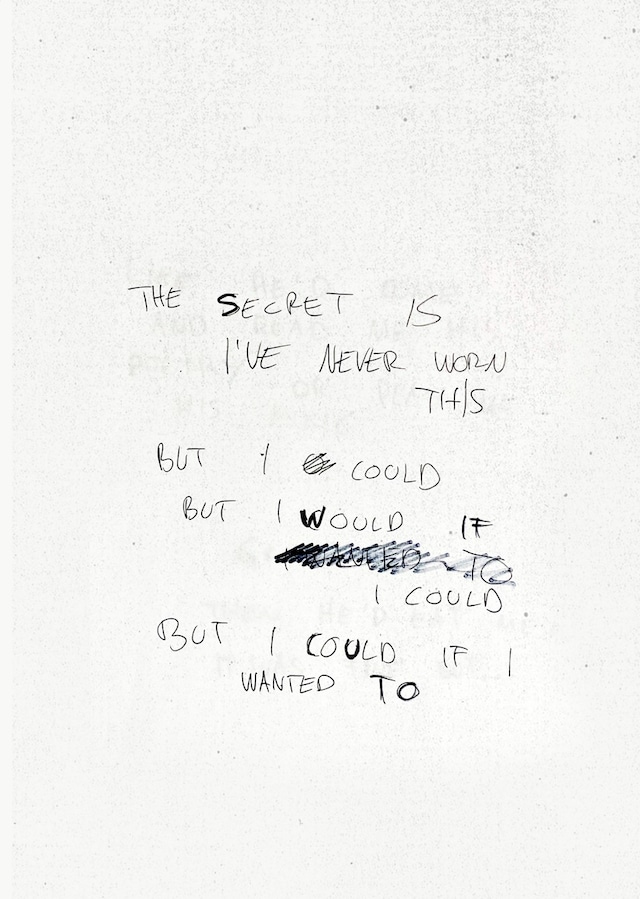 THE SECRET IS
I'VE NEVER WORN
THIS
BUT I COULD
BUT I WOULD IF
WANTED TO
I COULD
BUT I COULD IF I
WANTED TO